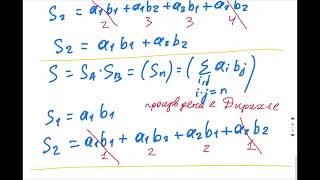 S₂ = a₁b₁ + a₁b₂ + a₂b₁ + a₂b₂
2 3 3 4
S₂ = a₁b₁ + a₂b₂
S = S_A · S_B = (Sₙ) = (∑ aᵢbⱼ)
i,j
i·j = n
S₁ = a₁b₁ произведение Дирихле
S₂ = a₁b₁ + a₁b₂ + a₂b₁ + a₂b₂
1 2 2 1